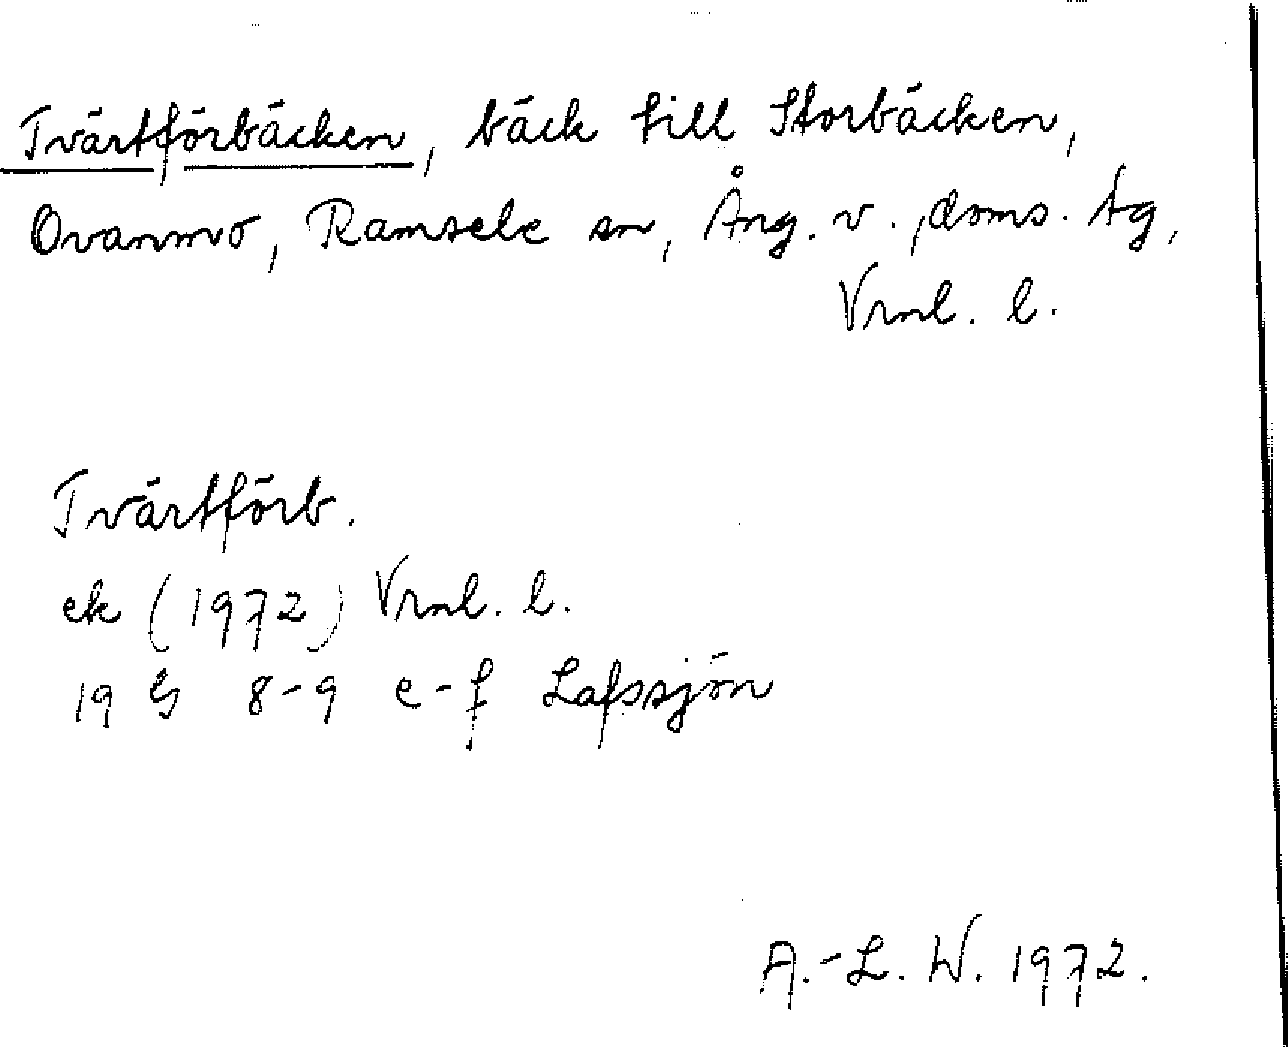 Tvärtförbäcken, bäck till Storbäcken,
Ovanmo, Ramsele sn, Ång. v., doms. tg,
Vrnl. l.
Tvärtförb.
ek (1972) Vrnl. l.
19 G 8-9 e-f Lafssjön
A.-L. W. 1972.